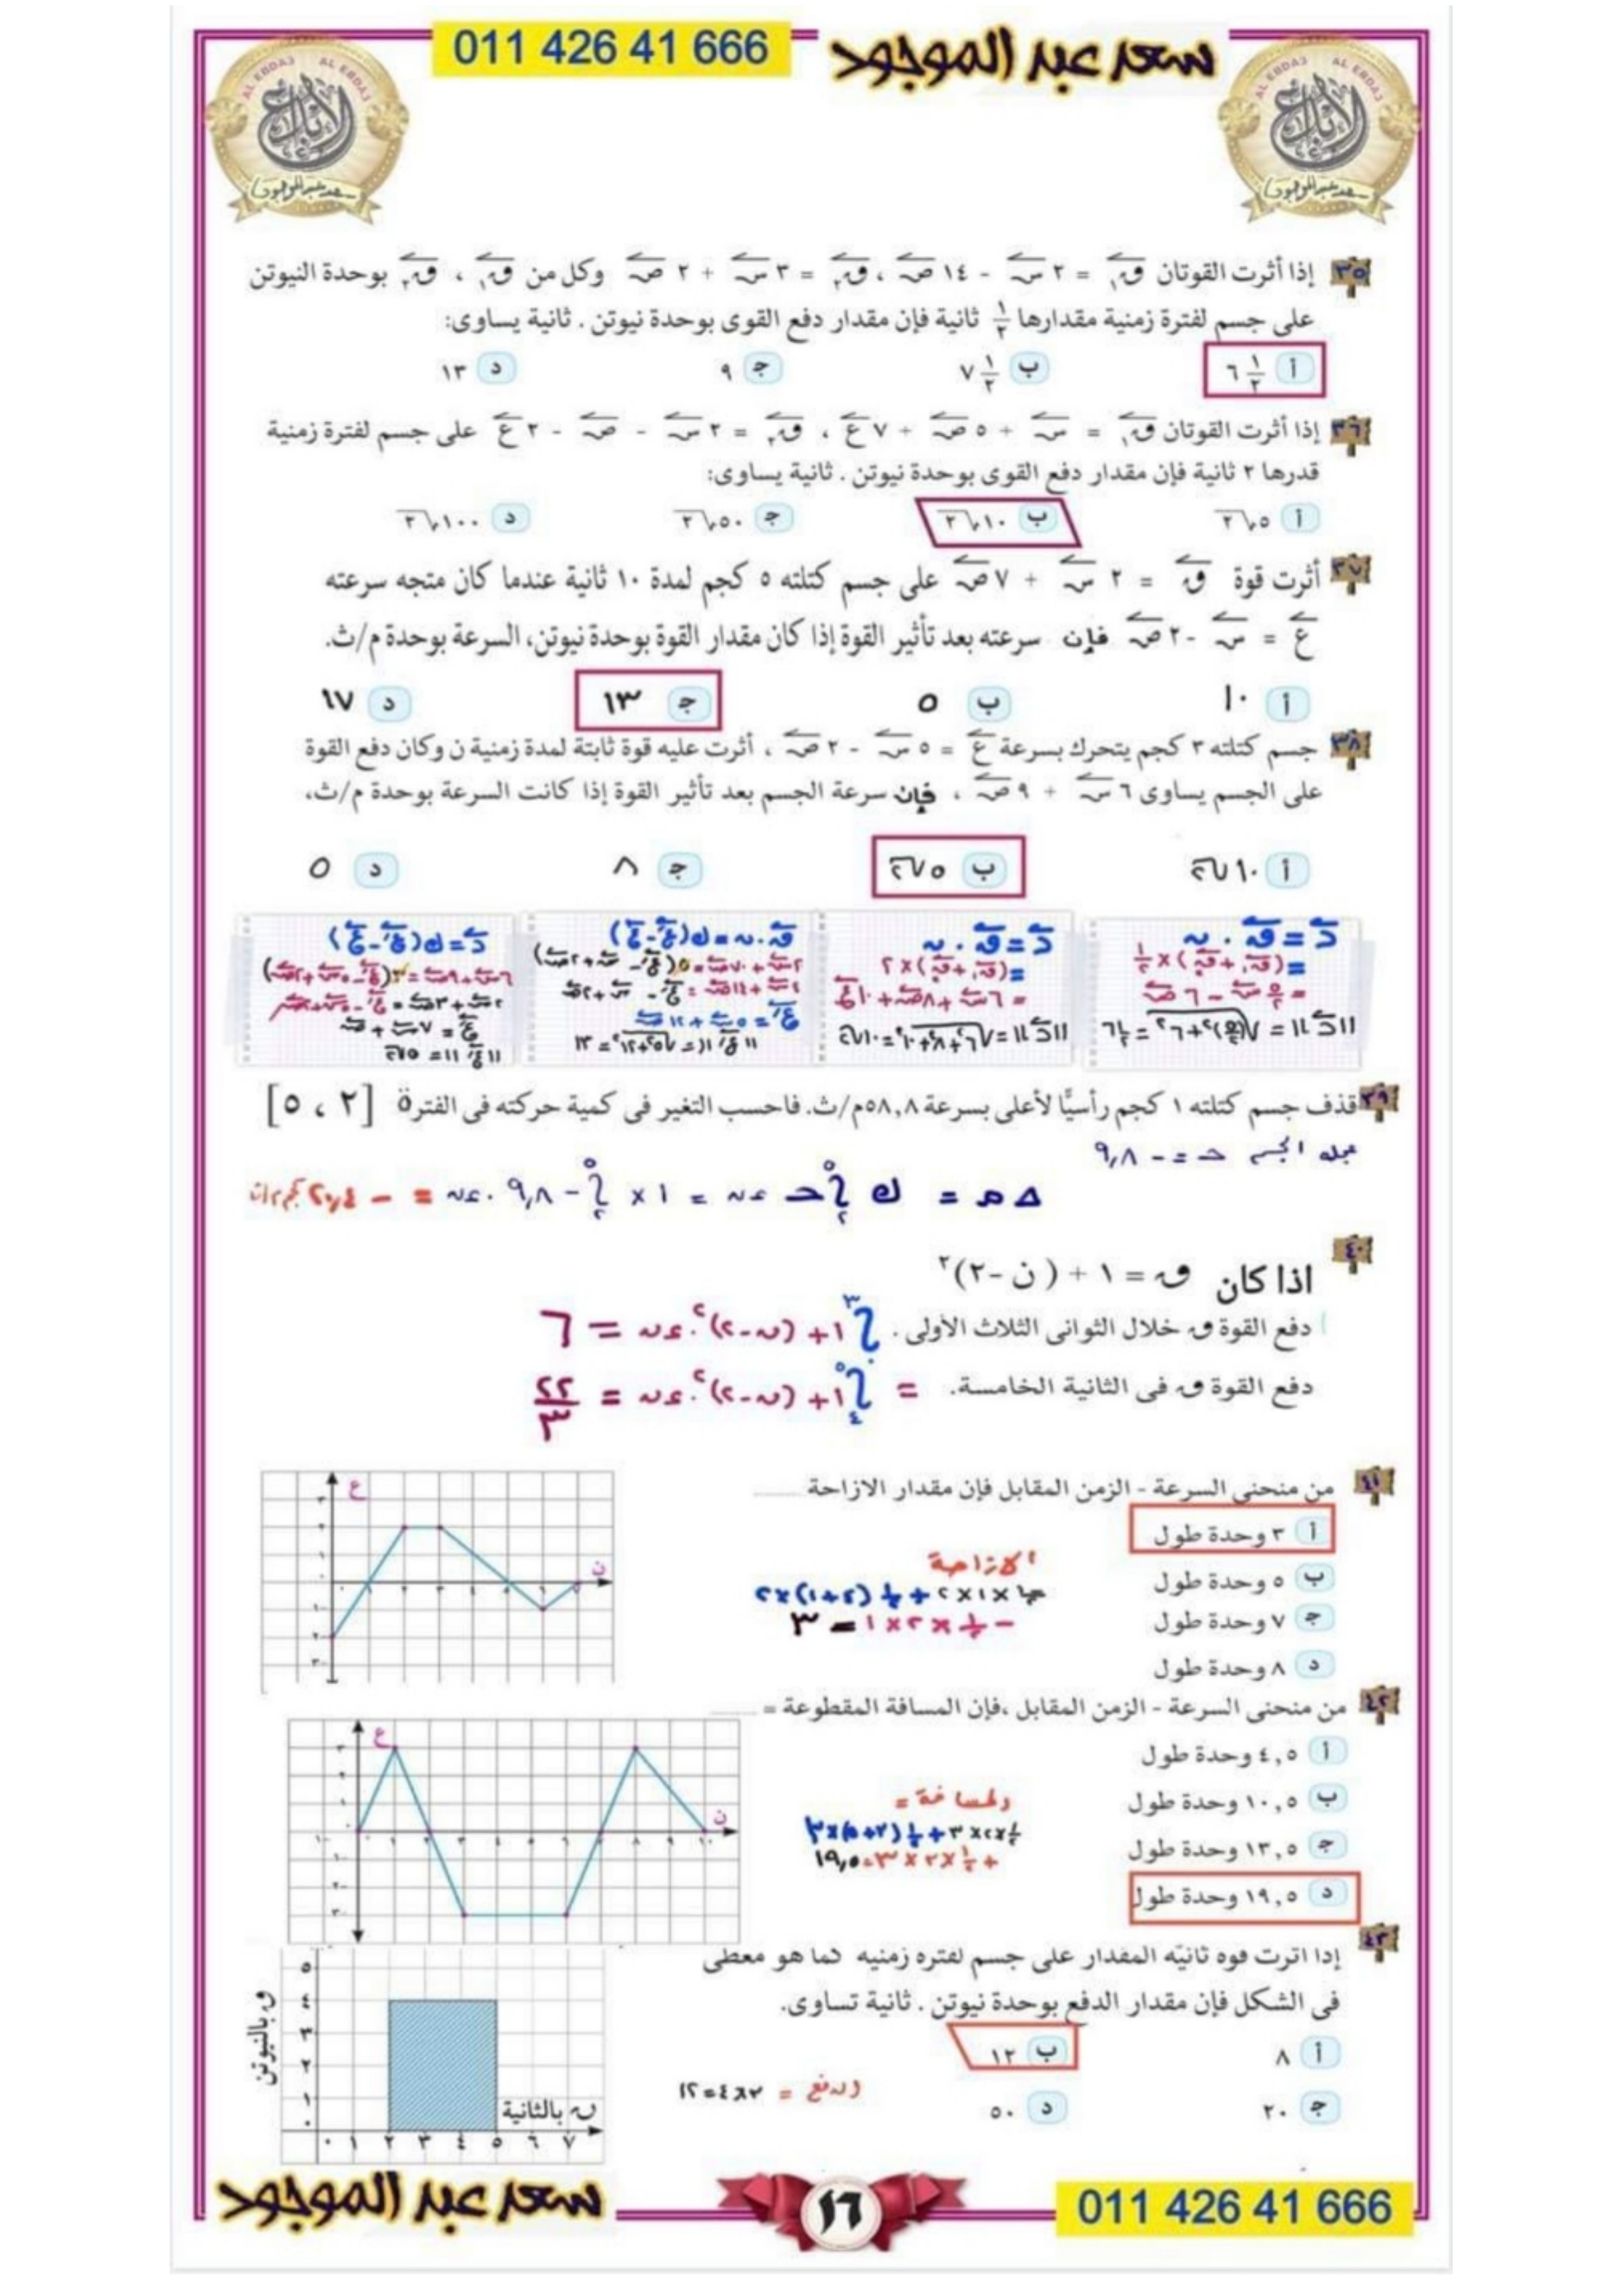 سعد عبد الموجود
011 426 41 666
AL EBDA3 AL EBDA3
الإبداع
سعد عبد الموجود
AL EBDA3 AL EBDA3
الإبداع
سعد عبد الموجود
٣٥ إذا أثرت القوتان ق١ = ٢ س - ١٤ ص ، ق٢ = ٣ س + ٢ ص وكل من ق١ ، ق٢ بوحدة النيوتن
على جسم لفترة زمنية مقدارها ١/٢ ثانية فإن مقدار دفع القوى بوحدة نيوتن . ثانية يساوى:
أ ٦ ١/٢ ب ٧ ١/٢ ج ٩ د ١٣
٣٦ إذا أثرت القوتان ق١ = س + ٥ ص + ٧ ع ، ق٢ = ٢ س - ص - ٢ ع على جسم لفترة زمنية
قدرها ٢ ثانية فإن مقدار دفع القوى بوحدة نيوتن . ثانية يساوى:
أ ٥√٢ ب ١٠√٢ ج ٥٠√٢ د ١٠٠√٢
٣٧ أثرت قوة ق = ٢ س + ٧ ص على جسم كتلته ٥ كجم لمدة ١٠ ثانية عندما كان متجه سرعته
ع = س - ٢ ص فإن سرعته بعد تأثير القوة إذا كان مقدار القوة بوحدة نيوتن، السرعة بوحدة م/ث.
أ ١٠ ب ٥ ج ١٣ د ١٧
٣٨ جسم كتلته ٣ كجم يتحرك بسرعة ع = ٥ س - ٢ ص ، أثرت عليه قوة ثابتة لمدة زمنية ن وكان دفع القوة
على الجسم يساوى ٦ س + ٩ ص ، فإن سرعة الجسم بعد تأثير القوة إذا كانت السرعة بوحدة م/ث،
أ ١٠√٢ ب ٥√٢ ج ٨ د ٥
د = ق . ن
= (ق١ + ق٢) × ١/٢
= ٥/٢ س - ٦ ص
||د|| = √((٥/٢)٢ + ٦٢) = ٦ ١/٢
د = ق . ن
= (ق١ + ق٢) × ٢
= ٦ س + ٨ ص + ١٠ ع
||د|| = √(٦٢ + ٨٢ + ١٠٢) = ١٠√٢
ق . ن = ك (ع/ - ع)
٢٠ س + ٧٠ ص = ٥ (ع/ - س + ٢ ص)
٤ س + ١٤ ص = ع/ - س + ٢ ص
ع/ = ٥ س + ١٢ ص
||ع/|| = √(٥٢ + ١٢٢) = ١٣
د = ك (ع/ - ع)
٦ س + ٩ ص = ٣ (ع/ - ٥ س + ٢ ص)
٢ س + ٣ ص = ع/ - ٥ س + ٢ ص
ع/ = ٧ س + ص
||ع/|| = ٥√٢
٣٩ قذف جسم كتلته ١ كجم رأسيًّا لأعلى بسرعة ٥٨,٨م/ث. فاحسب التغير فى كمية حركته فى الفترة [٢ ، ٥]
عجلة الجسم حـ = - ٩,٨
Δ م = ك ∫٢٥ حـ ءن = ١ × ∫٢٥ - ٩,٨ . ءن = - ٢٩,٤ كجم م/ث
٤٠
اذا كان ق = ١ + ( ن - ٢)٢
دفع القوة ق خلال الثوانى الثلاث الأولى . ∫٠٣ ١ + (ن-٢)٢ . ءن = ٦
دفع القوة ق فى الثانية الخامسة. = ∫٤٥ ١ + (ن-٢)٢ . ءن = ٢٢/٣
٤١ من منحنى السرعة - الزمن المقابل فإن مقدار الازاحة ..........
أ ٣ وحدة طول
ب ٥ وحدة طول
ج ٧ وحدة طول
د ٨ وحدة طول
الازاحة
- ١/٢ × ١ × ٢ + ١/٢ (٤ + ١) × ٢
- ١/٢ × ٢ × ١ = ٣
ع
ن
٤٢ من منحنى السرعة - الزمن المقابل ،فإن المسافة المقطوعة = ..........
أ ٤,٥ وحدة طول
ب ١٠,٥ وحدة طول
ج ١٣,٥ وحدة طول
د ١٩,٥ وحدة طول
المسافة =
١/٢ × ٢ × ٣ + ١/٢ (٣ + ٥) × ٣
+ ١/٢ × ٣ × ٣ = ١٩,٥
ع
ن
٤٣ إذا أثرت قوة ثابتة المقدار على جسم لفترة زمنية كما هو معطى
فى الشكل فإن مقدار الدفع بوحدة نيوتن . ثانية تساوى.
أ ٨ ب ١٢
ج ٢٠ د ٥٠
الدفع = ٣ × ٤ = ١٢
ق بالنيوتن
٥
٤
٣
٢
١
٠
ن بالثانية
٠ ١ ٢ ٣ ٤ ٥ ٦ ٧
سعد عبد الموجود
١٦
011 426 41 666